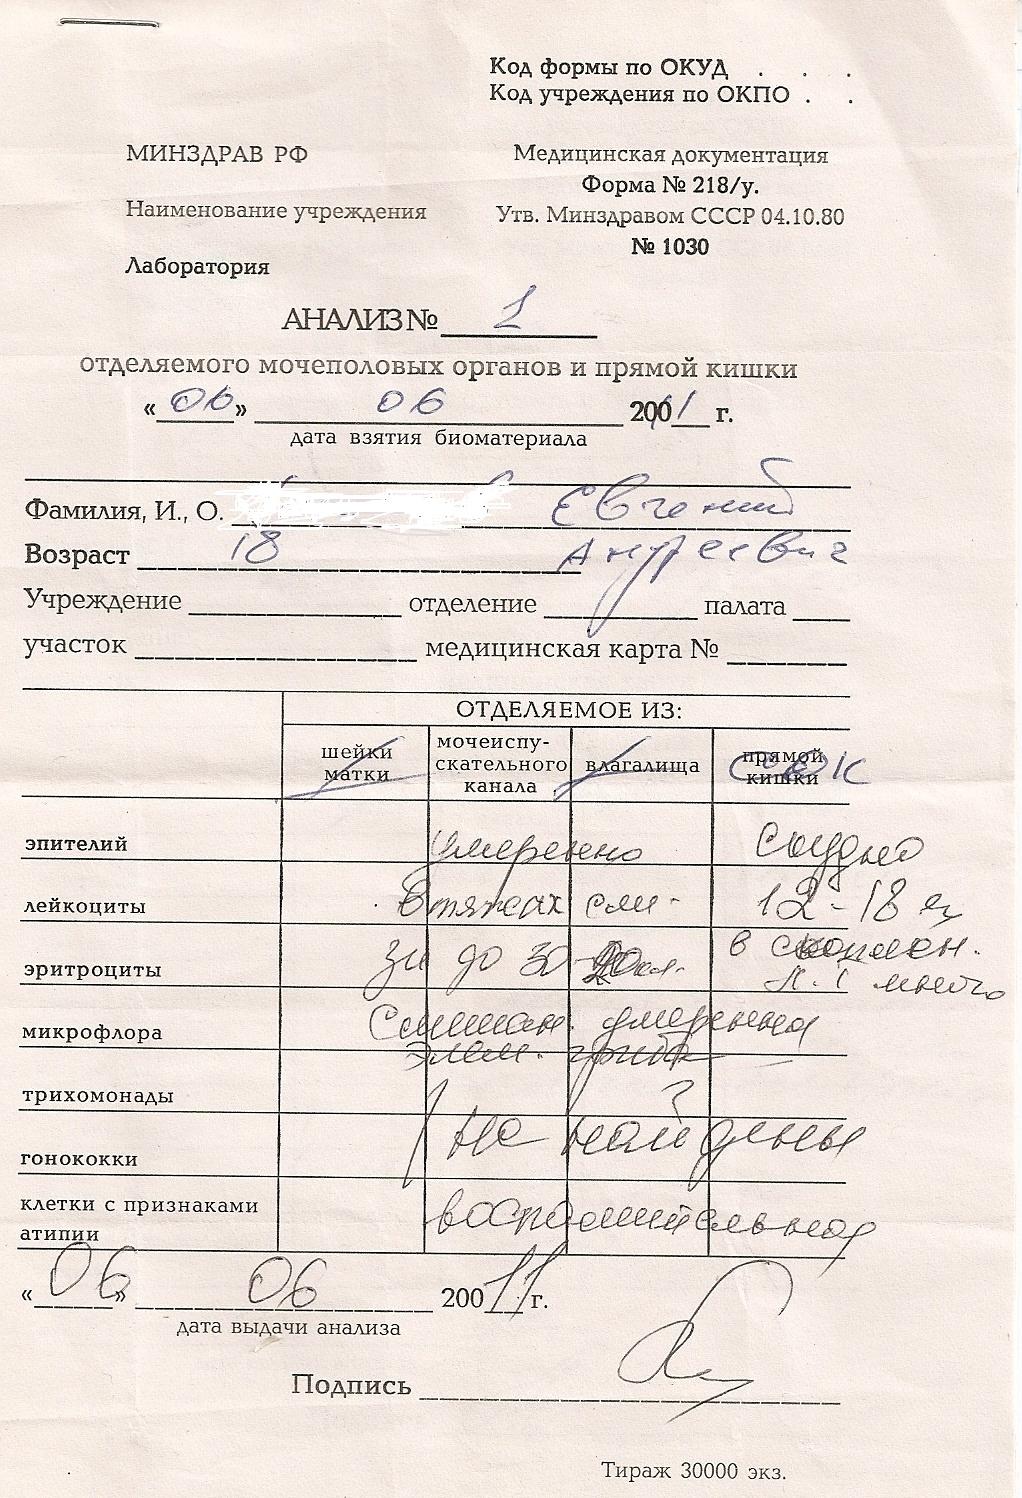 Код формы по ОКУД . . .
Код учреждения по ОКПО . .
МИНЗДРАВ РФ
Медицинская документация
Форма № 218/у.
Наименование учреждения
Утв. Минздравом СССР 04.10.80
№ 1030
Лаборатория
АНАЛИЗ № 1
отделяемого мочеполовых органов и прямой кишки
« 06 » 06 200 11 г.
дата взятия биоматериала
Фамилия, И., О. Евгений
Возраст 18 Андреевич
Учреждение отделение палата
участок медицинская карта №
ОТДЕЛЯЕМОЕ ИЗ:
шейки матки
мочеиспу-скательного канала
влагалища
прямой кишки
сок
эпителий умеренно скудно
лейкоциты в тяжах сли- 12-18
эритроциты зи до 30- в скоплен.
Л. много
микрофлора Смешан. умеренная
элем. гриба
трихомонады ?
не найдены
гонококки
клетки с признаками
атипии
воспалительная
« 06 » 06 200 11 г.
дата выдачи анализа
Подпись
Тираж 30000 экз.